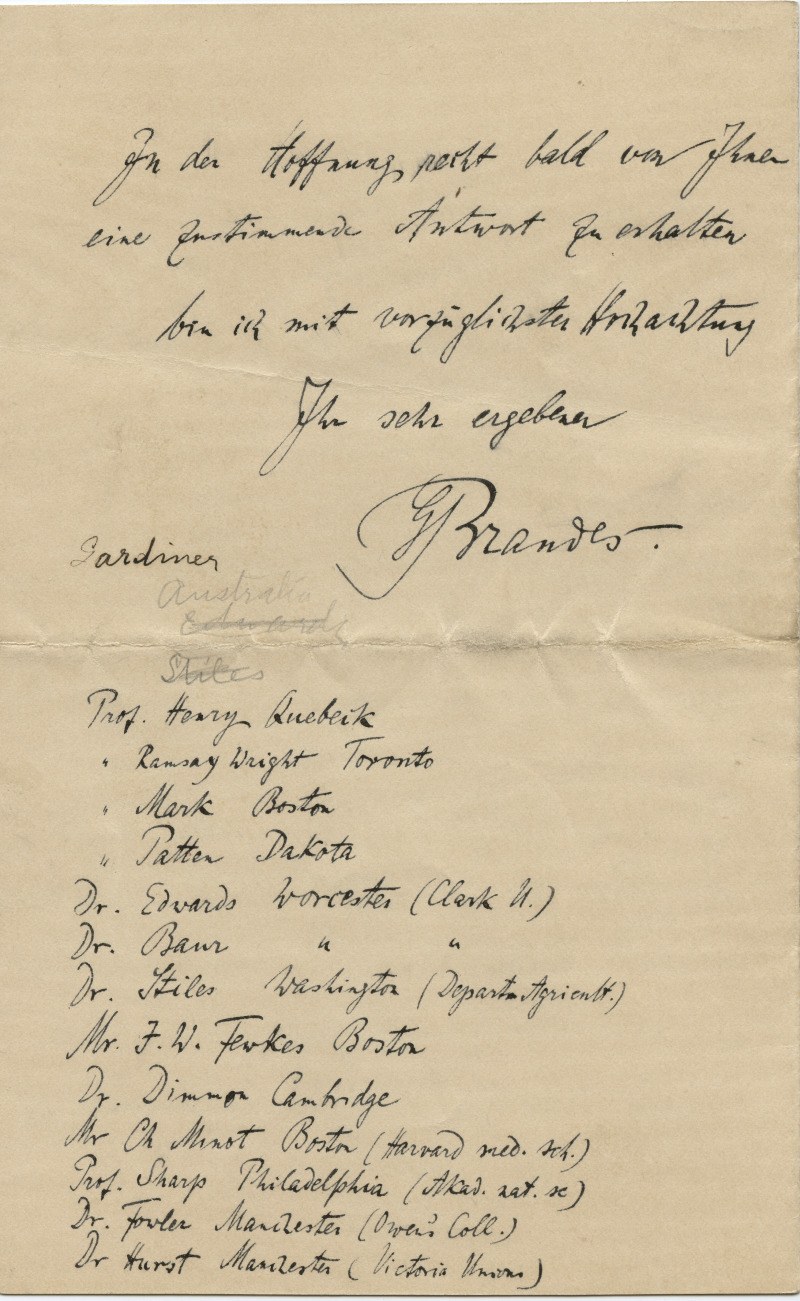 In der Hoffnung recht bald von Ihnen
eine zustimmende Antwort zu erhalten
bin ich mit vorzüglichster Hochachtung
Ihr sehr ergebener
GBrandes.
Gardiner
Australia
Edwards
Stiles
Prof. Henry Quebeck
" Ramsay Wright Toronto
" Mark Boston
" Patten Dakota
Dr. Edwards Worcester (Clark U.)
Dr. Baur " "
Dr. Stiles Washington (Departm Agricult.)
Mr. F. W. Fewkes Boston
Dr. Dimmon Cambridge
Mr Ch Minot Boston (Harvard med. sch.)
Prof. Sharp Philadelphia (Akad. nat. sc)
Dr. Fowler Manchester (Owen's Coll.)
Dr Hurst Manchester (Victoria